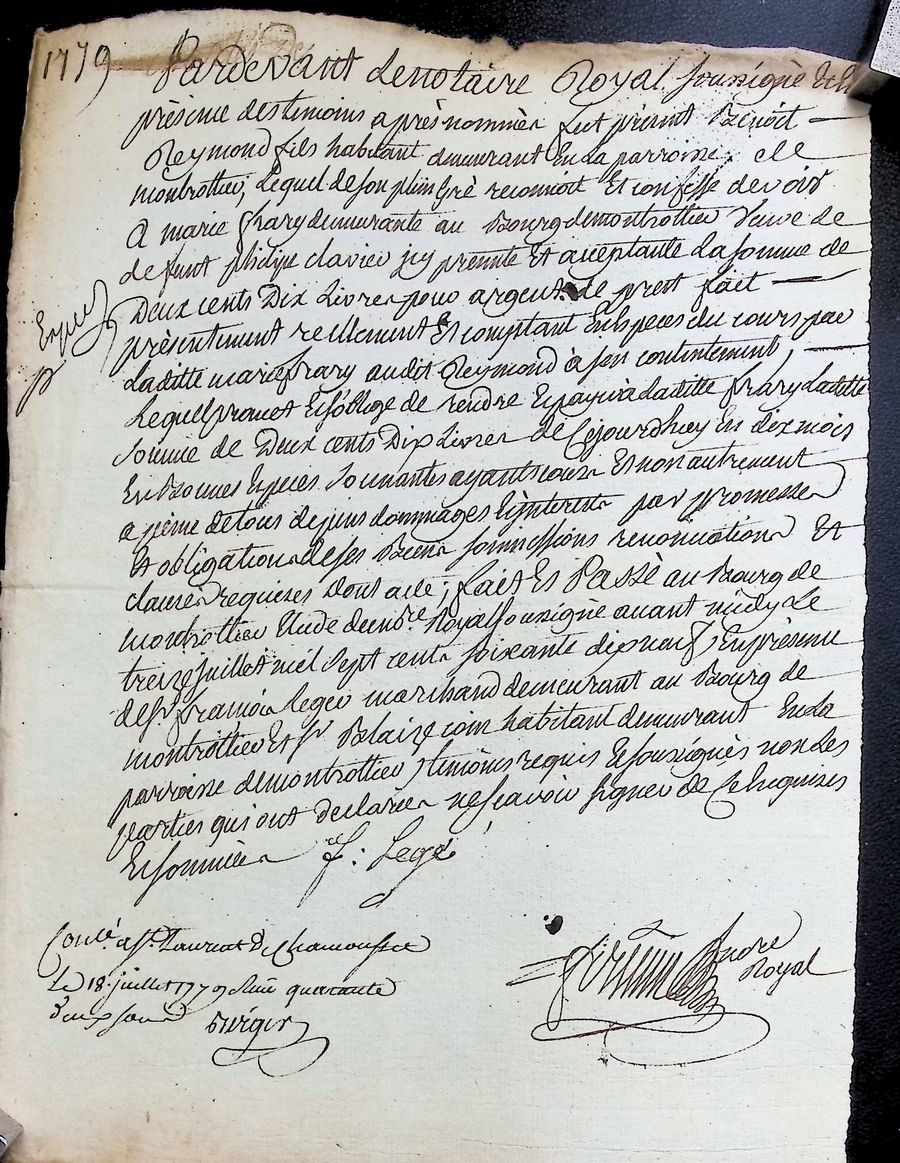 1779
Pardevant Le notaire Royal Sousigné Et En
présence des temoins après nommés fut présent Benoit
Reymond fils habitant demeurant En La parroisse de
montrottier, Lequel de son plein Gré reconnoit Et confesse devoir
A marie frary demeurante au Bourg de montrottier veuve de
defunt philipe clavier icy presente Et acceptante La somme de
Deux cents Dix Livres pour argent de prest fait
présentement réellement Et comptant En Espèces du cours par
Laditte marie frary audit Reymond à son contentement,
Lequel promet Et s'oblige de rendre Et payer à Laditte frary Laditte
somme de Deux cents Dix Livres de Cejourdhuy En dix mois
En Bonnes Espèces Sonnantes ayants cours Et non autrement
a peine de tous depens dommages Et interests par promesses
Et obligation de ses Biens soumissions renonciations Et
clauses requises Dont acte, fait Et Passé au Bourg de
montrottier Etude du no.re Royal Sousigné avant midy Le
treize juillet mil Sept cents soixante dix neuf, En présence
de Sr. françois Leger marchand demeurant au Bourg de
montrottier Et Sr Blaize coin habitant demeurant En La
parroisse de montrottier temoins requis Et sousignés non Les
parties qui ont declarées ne sçavoir signer de Ce Enquises
Et sommées f: Legé
Conlé a St. Laurent De Chamousset
Le 18. juillet 1779 Reçu quarante
Deux sous
André
Royal